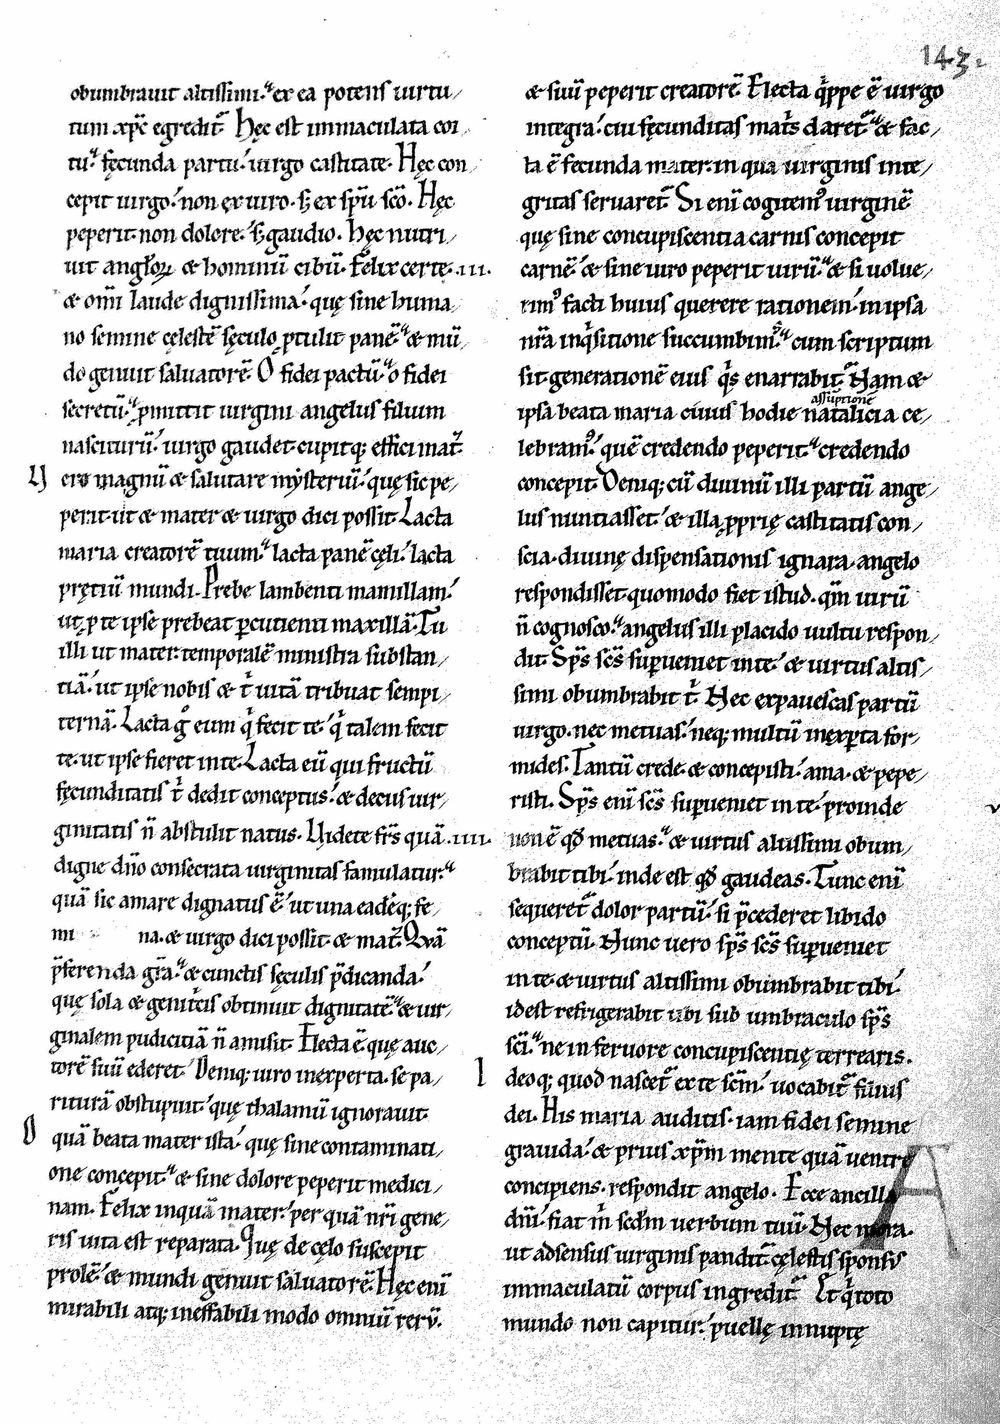 143.
obumbrauit altissimi. ex ea potens uirtu/
tum xp̄c egredit̄. Hęc est immaculata coi/
tu. fęcunda partu. uirgo castitate. Hęc con
cepit uirgo. non ex uiro. s; ex sp̄u sc̄o. Hęc
peperit. non dolore. s; gaudio. hęc nutri/
uit angl̄oꝝ & hominū cibū. Felix certe .iii.
& om̄i laude dignissima. quę sine huma/
no semine cęlestē sęculo ꝓtulit panē. & mū/
do genuit saluatorē. O fidei pactū. o fidei
secretū. ꝓmittit uirgini angelus filium
nasciturū. uirgo gaudet. cupitq; effici mat̄.
U ero magnū & salutare mẏsteriū. quę sic pe/
perit. ut & mater & uirgo dici possit. Lacta
maria creatorē tuum. lacta panē cęli. lacta
pręciū mundi. Prebe lambenti mamillam.
ut ꝓ te ipse prebeat ꝑcutienti maxillā. Tu
illi ut mater. temporalē ministra substan/
tiā. ut ipse nobis & t̄ uitā tribuat sempi/
ternā. Lacta gͦ eum qͥ fecit te. qͥ talem fecit
te. ut ipse fieret in te. Lacta eū qui fructū
fęcunditatis t̄ dedit conceptus. & decus uir/
ginitatis n̄ abstulit natus. Uidete fr̄s quā .iiii.
digne dn̄o consecrata uirginitas famulatur.
quā sic amare dignatus ē. ut una eadēq; fe/
mi na. & uirgo dici possit. & mat̄. Quā
p̄ferenda gr̄a. & cunctis sęculis p̄dicanda.
quę sola & genitͥcis obtinuit dignitatē. & uir/
ginalem pudicitiā n̄ amisit. Electa ē quę auc/
torē suū ederet. Deniq; uiro inexperta. se pa/
riturā obstupuit. quę thalamū ignorauit.
O quā beata mater ista. quę sine contaminati/
one concepit. & sine dolore peperit medici/
nam. Felix inquā mater. per quā nr̄i gene/
ris uita est reparata. Quę de cęlo suscepit
prolē. & mundi genuit saluatorē. Hęc enī
mirabili atq; ineffabili modo omniū rerū.
& suū peperit creatorē. Electa qͥppe ē uirgo
integra. cui fęcunditas mat̄s daret̄. & fac/
ta ē fecunda mater. in qua uirginis inte/
gritas seruaret̄. Si enī cogitemꝰ uirginē
quę sine concupiscentia carnis concepit
carnē. & sine uiro peperit uirū. & si uolue/
rimꝰ facti huius querere rationem. in ipsa
nr̄a inqͥsitione succumbimꝰ. cum scriptum
sit. generationē eius qͥs enarrabit. Nam &
assūptionē
ipsa beata maria cuius hodie natalicia ce/
lebramꝰ. quē credendo peperit. credendo
concepit. Deniq; cū diuinū illi partū ange/
lus nuntiasset. & illa ꝓprię castitatis con/
scia. diuinę dispensationis ignara. angelo
respondisset. quomodo fiet istud. qm̄ uirū
n̄ cognosco. angelus illi placido uultu respon/
dit. Sp̄s sc̄s suꝑueniet in te. & uirtus altis/
simi obumbrabit t̄. Nec expauescas partū
uirgo. nec metuas. neq; multū inexꝑta for/
mides. Tantū crede. & concepisti. ama. & pepe/
risti. Sp̄s enī sc̄s suꝑueniet in te. proinde
non ē qđ metuas. & uirtus altissimi obum/
brabit tibi. inde est qđ gaudeas. Tunc enī
sequeret̄ dolor partū. si p̄cederet libido
conceptū. Nunc uero sp̄s sc̄s suꝑueniet
in te. & uirtus altissimi obumbrabit tibi.
idest refrigerabit tibi sub umbraculo sp̄s
sc̄i. ne in feruore concupiscentię terrearis.
I deoq; quod nascet̄ ex te sc̄m. uocabit̄ filius
dei. His maria auditis. iam fidei semine
grauida. & prius xp̄m mente quā uentre
concipiens. respondit angelo. Ecce ancilla
dn̄i. fiat m̄ scd̄m uerbum tuū. Nec mora.
ut adsensus uirginis pandit̄. cęlestis sponsus
immaculatū corpus ingredit̄. Et qͥ toto
mundo non capitur. puellę innuptę
A